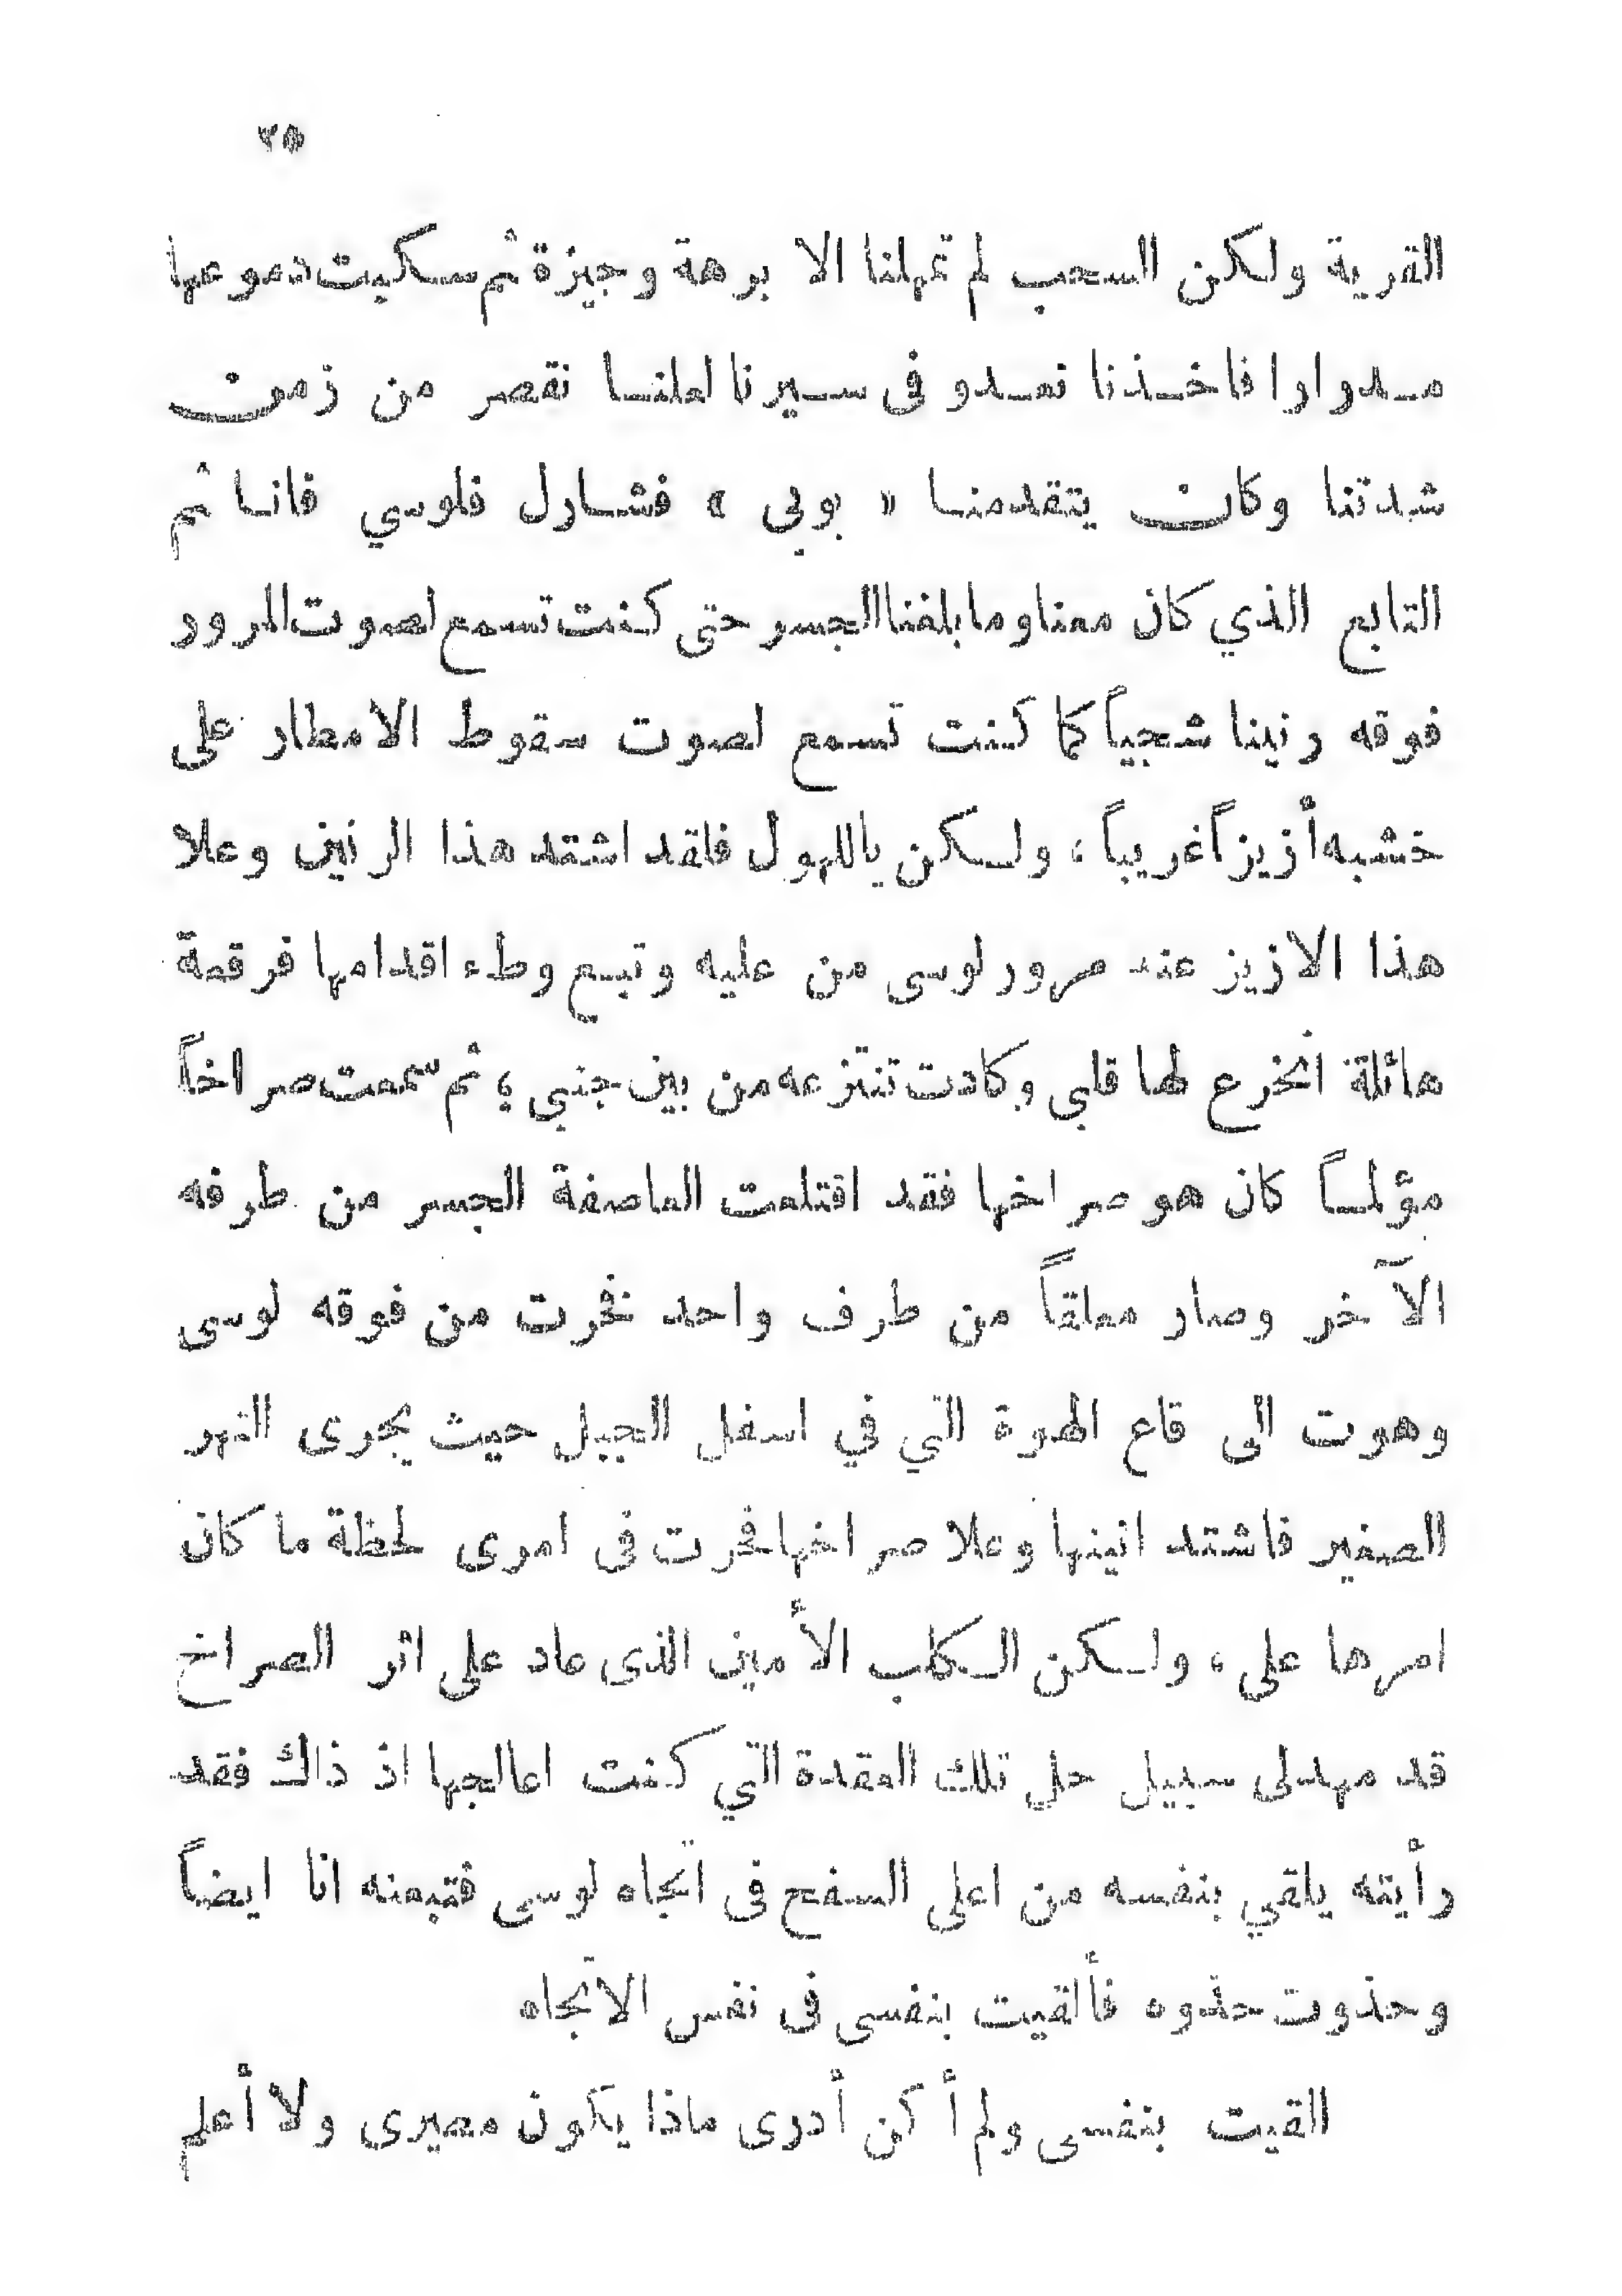 ٢٥
القرية ولكن السحب لم تمهلنا الا برهة وجيزة ثم سكبت دموعها
مدوارا فاخذنا نعدو فى سيرنا لعلنا نقصر من زمن
شدتنا وكان يتقدمنا « بوبي » فشارل فلوسي فانا ثم
التابع الذي كان معنا وما بلغنا الجسر حتى كنت تسمع لصوت المرور
فوقه رنينا شجياً كما كنت تسمع لصوت سقوط الامطار على
خشبه أزيزاً غريباً ، ولكن ياللهول فلقد اشتد هذا الرنين وعلا
هذا الازيز عند مرور لوسى من عليه وتبع وطء اقدامها فرقعة
هائلة انخرع لها قلبي وكادت تنتزعه من بين جنبي ؛ ثم سمعت صراخاً
مؤلماً كان هو صراخها فقد اقتلعت العاصفة الجسر من طرفه
الآخر وصار معلقاً من طرف واحد نخرت من فوقه لوسى
وهوت الى قاع الهوة التي في اسفل الجبل حيث يجرى النهر
الصغير فاشتد انينها وعلا صراخها فخرت فى امرى لحظة ما كان
امرها على ، ولكن الكلب الأمين الذى عاد على اثر الصراخ
قد مهد لى سبيل حل تلك العقدة التي كنت اعالجها اذ ذاك فقد
رأيته يلقي بنفسه من اعلى السفح فى اتجاه لوسى فتبعته انا ايضاً
وحذوت حذوه فألقيت بنفسى فى نفس الاتجاه
القيت بنفسى ولم أكن أدرى ماذا يكون مصيرى ولا أعلم